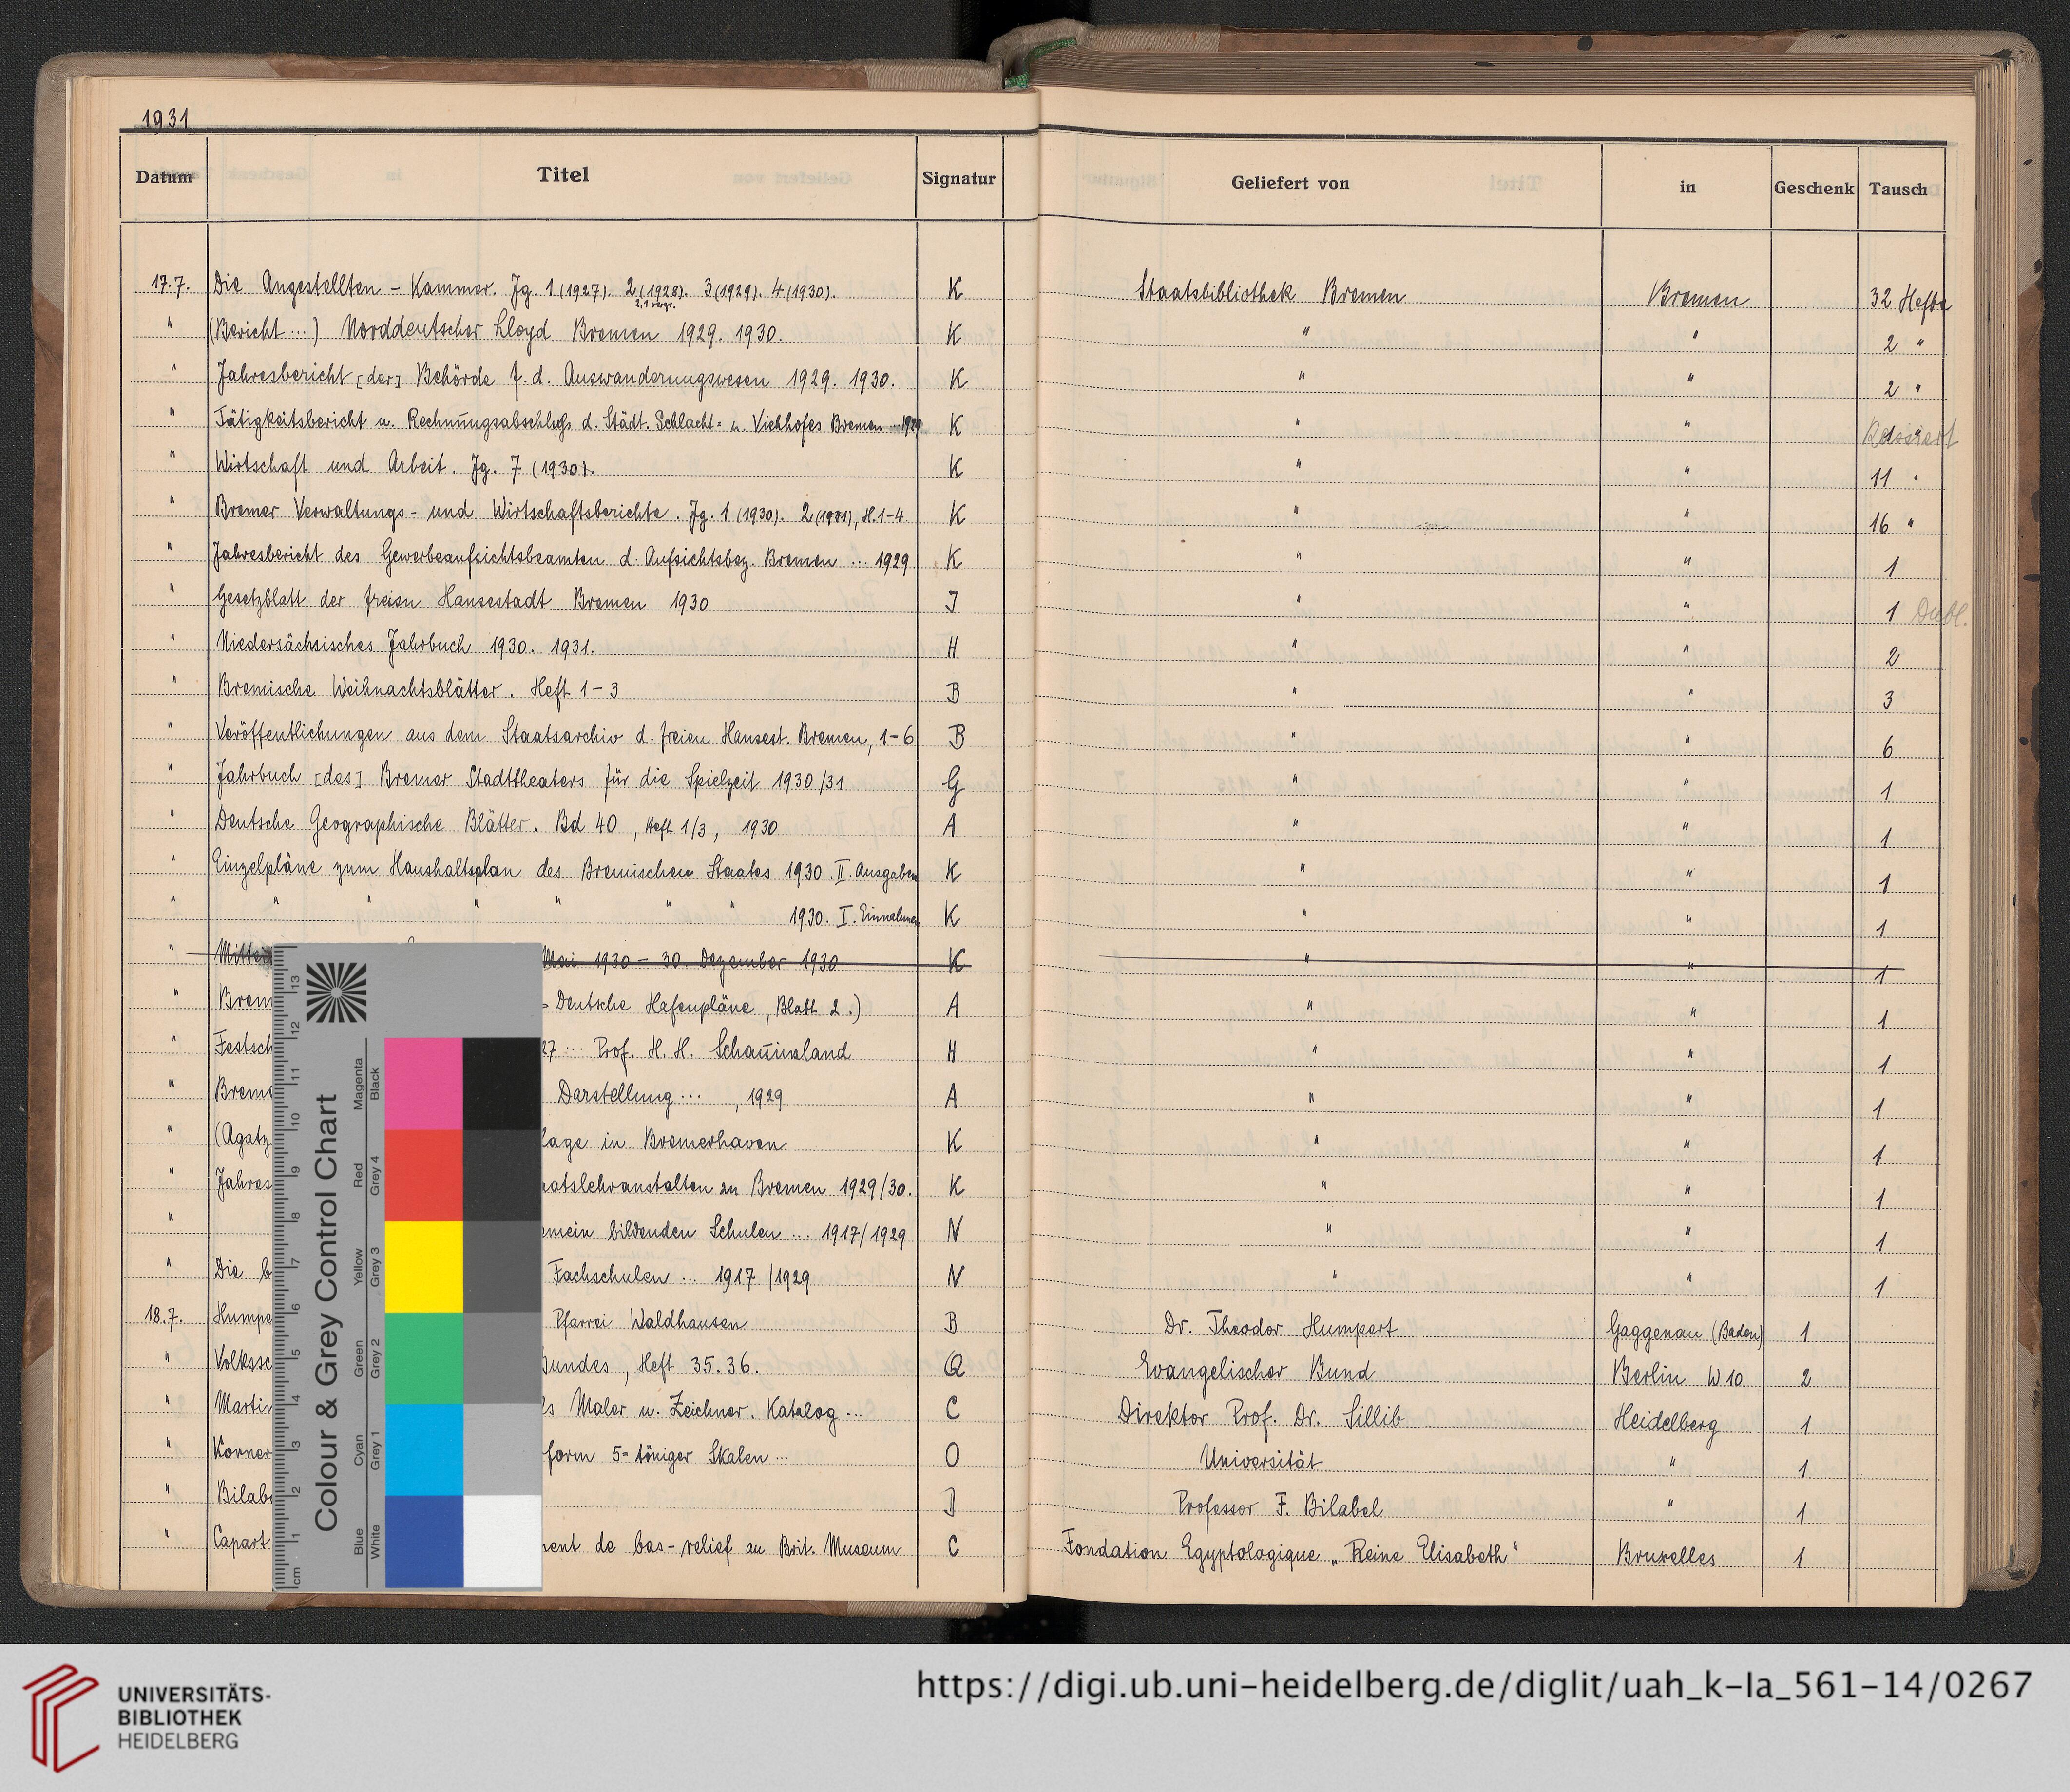 1931
Datum Titel Signatur Geliefert von in Geschenk Tausch
17.7. Die Angestellten - Kammer. Jg. 1 (1927). 2 (1928). 3 (1929). 4 (1930). K Staatsbibliothek Bremen Bremen 32 Hefte
" (Bericht ...) Norddeutscher Lloyd Bremen 1929. 1930. K " " 2 "
" Jahresbericht [der] Behörde f. d. Auswanderungswesen 1929. 1930. K " " 2 "
" Tätigkeitsbericht u. Rechnungsabschluss d. Städt. Schlacht= u. Viehhofes Bremen ... 1929 K " "
" Wirtschaft und Arbeit. Jg. 7 (1930). K " " 11 "
" Bremer Verwaltungs- und Wirtschaftsberichte. Jg. 1 (1930). 2 (1931), H. 1-4 K " " 16 "
" Jahresbericht des Gewerbeaufsichtsbeamten d. Aufsichtsbez. Bremen ... 1929 K " " 1
" Gesetzblatt der freien Hansestadt Bremen 1930 J " " 1 Dubl.
" Niedersächsisches Jahrbuch 1930. 1931. H " " 2
" Bremische Weihnachtsblätter. Heft 1-3 B " " 3
" Veröffentlichungen aus dem Staatsarchiv d. freien Hansest. Bremen, 1-6 B " " 6
" Jahrbuch [des] Bremer Stadttheaters für die Spielzeit 1930/31 G " " 1
" Deutsche Geographische Blätter. Bd 40, Heft 1/3, 1930 A " " 1
" Einzelpläne zum Haushaltsplan des Bremischen Staates 1930. II. Ausgaben K " " 1
" " " " " " " 1930. I. Einnahmen K " " 1
" Mittei Mai 1930 - 30. Dezember 1930 K " " 1
" Brem = Deutsche Hafenpläne, Blatt 2.) A " " 1
" Festsch 27 ... Prof. H. H. Schauinsland H " " 1
" Breme Darstellung ... , 1929 A " " 1
" (Agatz lage in Bremerhaven K " " 1
" Jahres aatslehranstalten zu Bremen 1929/30. K " " 1
" emein bildenden Schulen ... 1917/1929 N " " 1
" Die b Fachschulen ... 1917/1929 N " " 1
18.7. Humpe Pfarrei Waldhausen B Dr. Theodor Humpert Gaggenau (Baden) 1
" Volkssc Bundes, Heft 35.36. Q Evangelischer Bund Berlin W 10 2
" Martin ls Maler u. Zeichner. Katalog ... C Direktor Prof. Dr. Sillib Heidelberg 1
" Korner form 5=töniger Skalen ... O Universität " 1
" Bilabe J Professor F. Bilabel " 1
" Capart ment de bas-relief au Brit. Museum C Fondation Egyptologique „Reine Elisabeth" Bruxelles 1
Colour & Grey Control Chart
Blue Cyan Green Yellow Red Magenta
White Grey 1 Grey 2 Grey 3 Grey 4 Black
cm 1 2 3 4 5 6 7 8 9 10 11 12 13
UNIVERSITÄTS-
BIBLIOTHEK
HEIDELBERG
https://digi.ub.uni-heidelberg.de/diglit/uah_k-Ia_561-14/0267